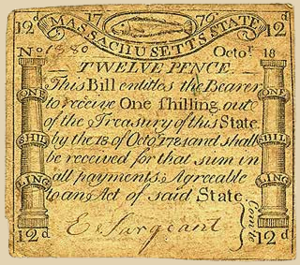 12d 17 76 12d
MASSACHUSETTS STATE
No. 1380 Octor. 18
TWELVE PENCE
This Bill entitles the Bearer
to receive One Shilling out
of the Treasury of this State
by the 18 of Octo. 1781 and shall
be received for that sum in
all payments, Agreeable
to an Act of said State.
ONE SHIL LING
ONE SHIL LING
E. Sargeant
Comtee
12d 12d